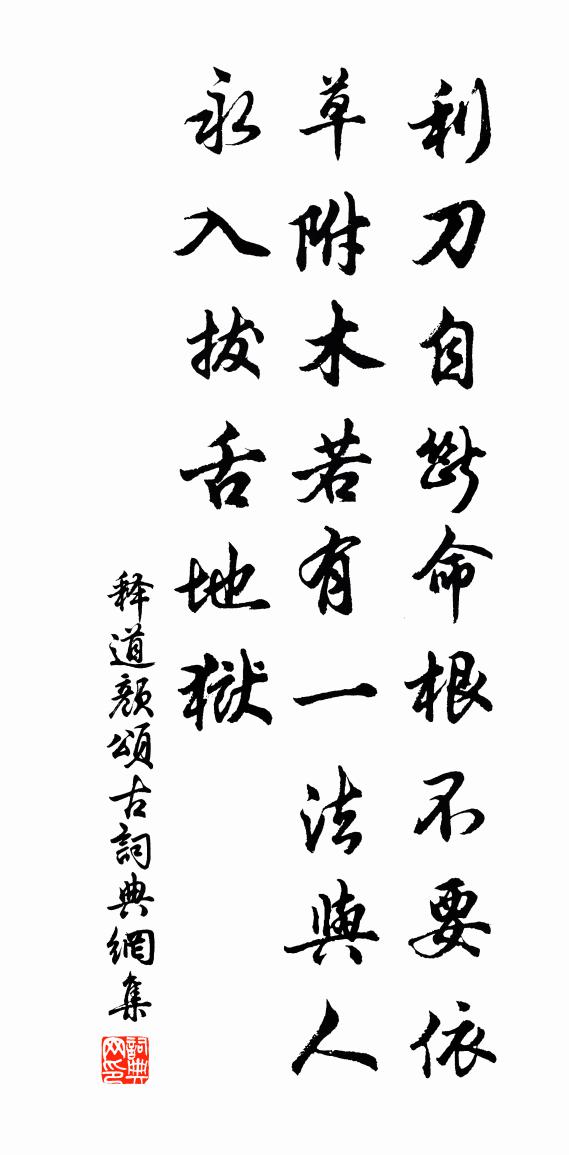 利刀自斷命根不要依
草附木若有一法與人
永入拔舌地獄
释道顏頌古詞典網集
詞典网印